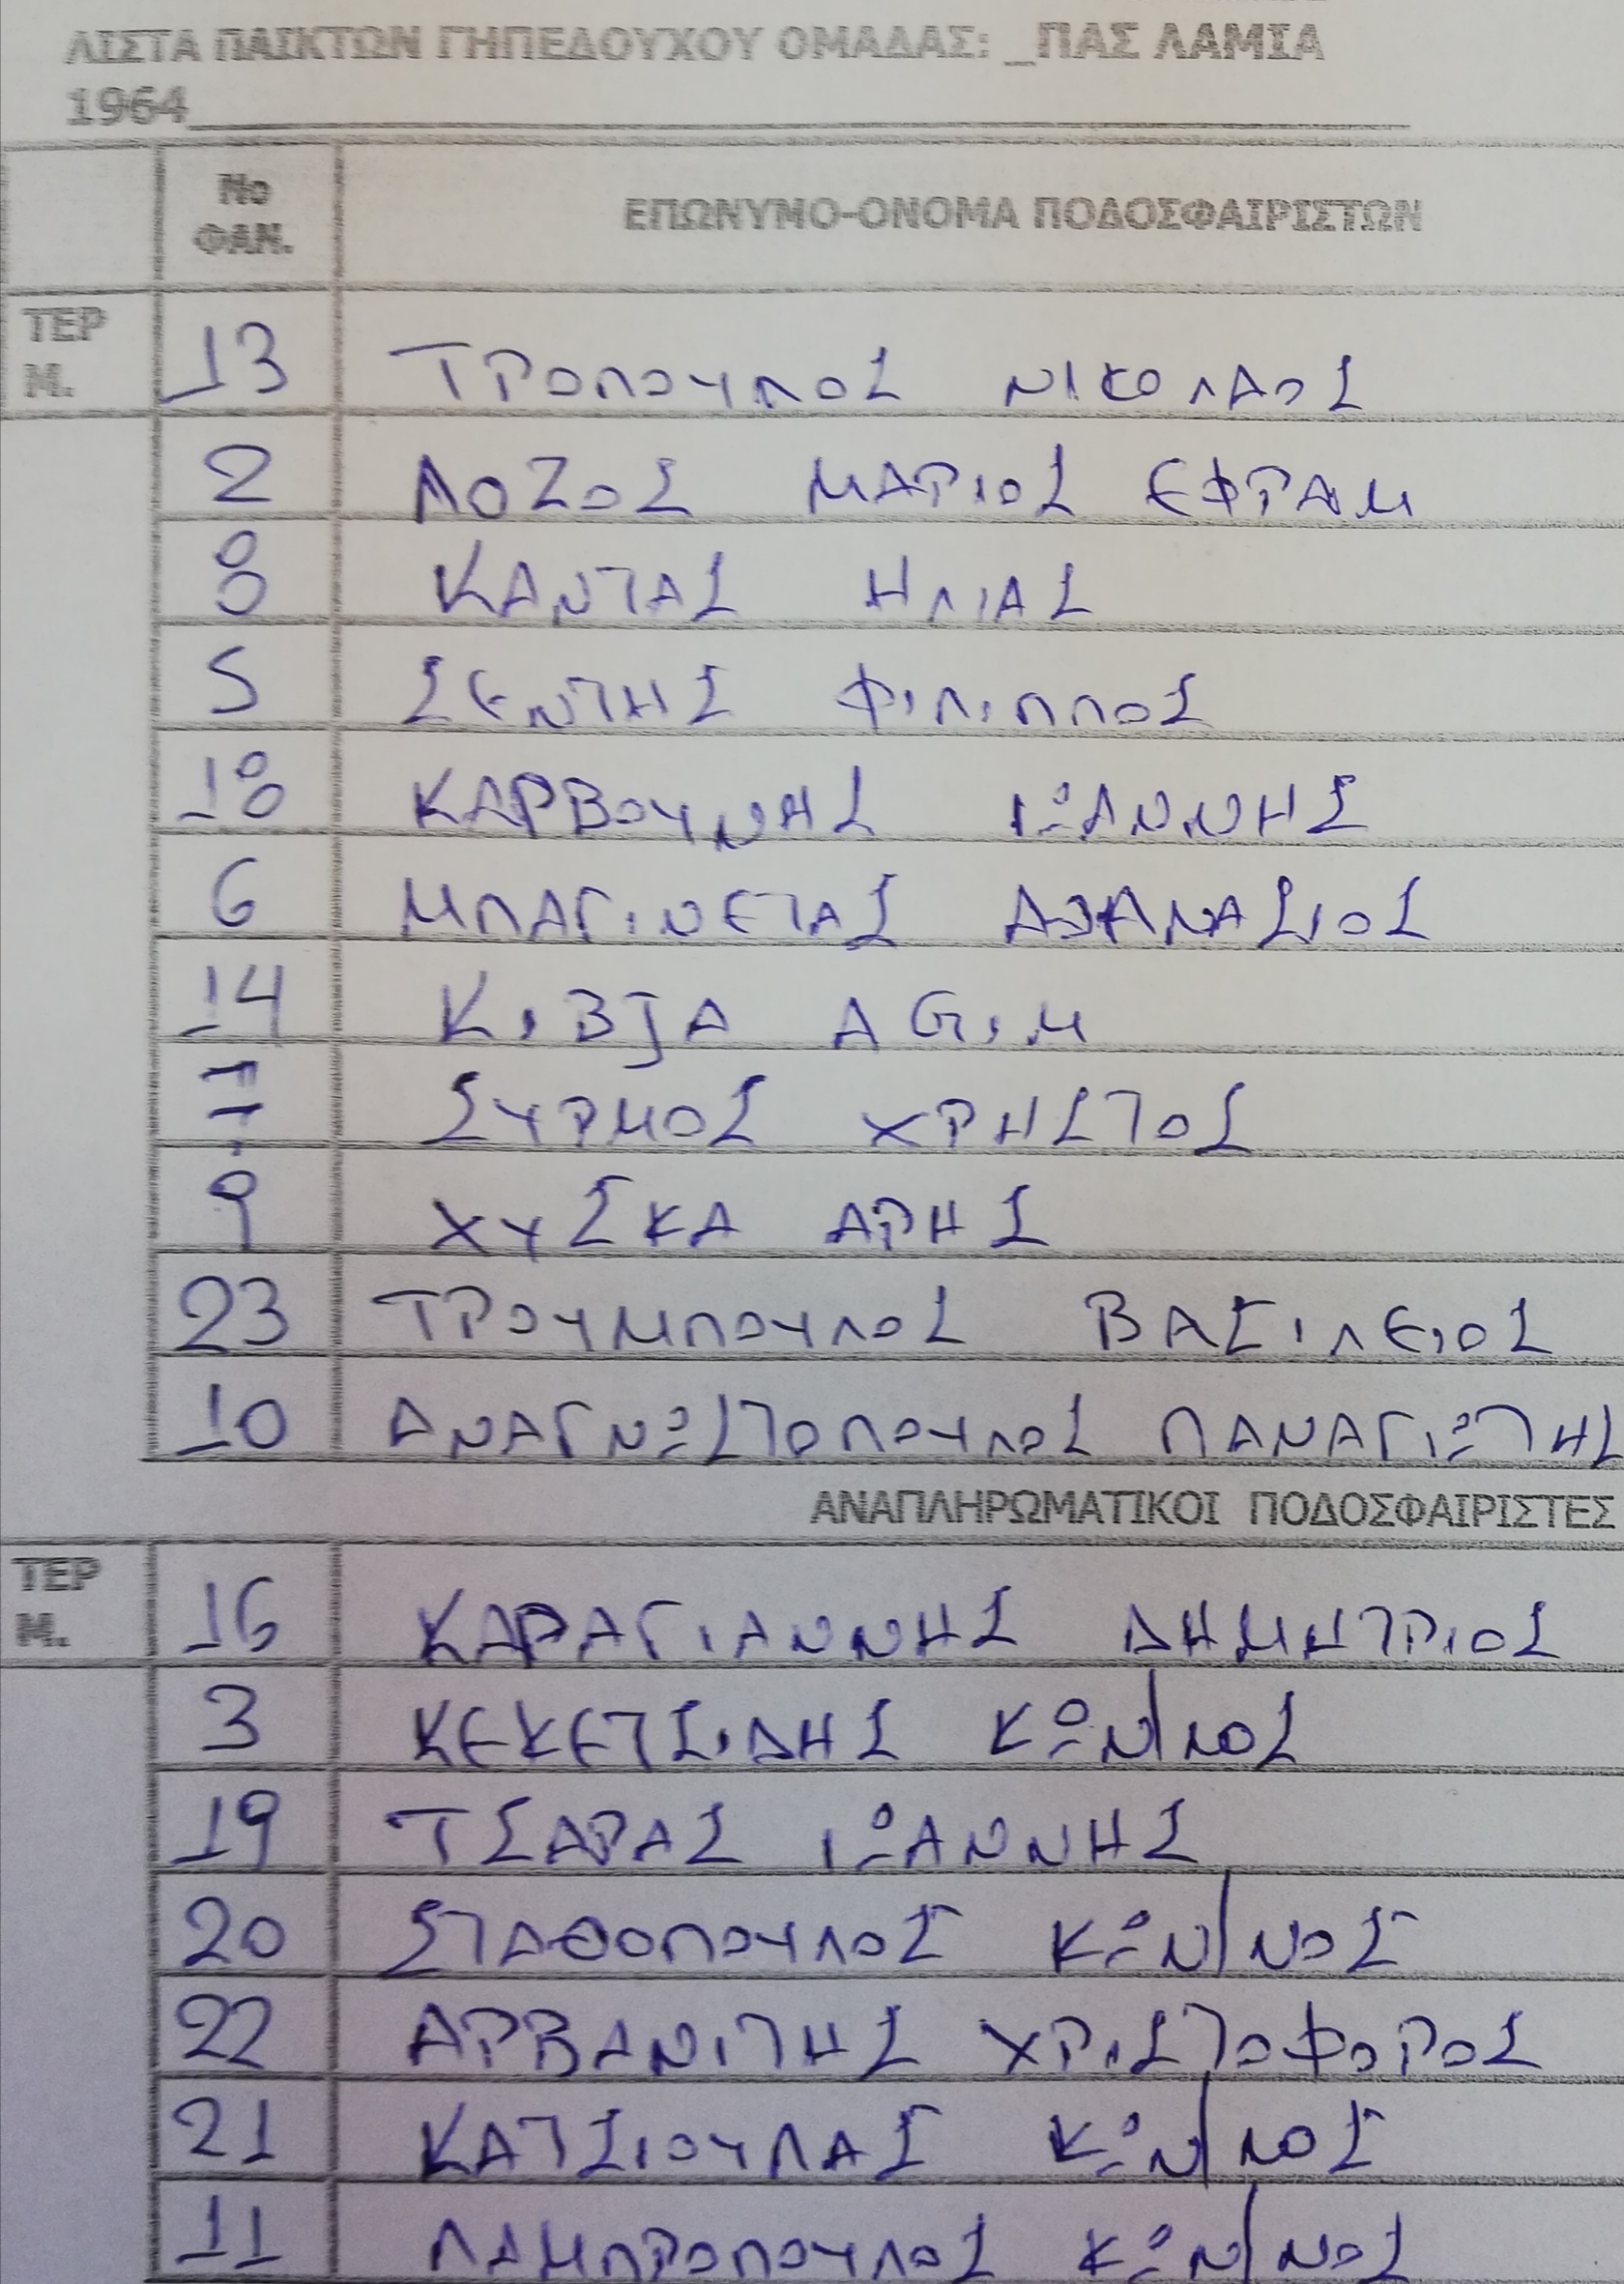 ΛΙΣΤΑ ΠΑΙΚΤΩΝ ΓΗΠΕΔΟΥΧΟΥ ΟΜΑΔΑΣ: _ΠΑΣ ΛΑΜΙΑ
1964
Νο ΦΑΝ. ΕΠΩΝΥΜΟ-ΟΝΟΜΑ ΠΟΔΟΣΦΑΙΡΙΣΤΩΝ
ΤΕΡΜ. 13 ΤΡΟΠΟΥΛΟΣ ΝΙΚΟΛΑΟΣ
2 ΛΟΖΟΣ ΜΑΡΙΟΣ ΕΦΡΑΜ
8 ΚΑΝΤΑΣ ΗΛΙΑΣ
5 ΣΕΝΤΗΣ ΦΙΛΙΠΠΟΣ
18 ΚΑΡΒΟΥΝΗΣ ΙΩΑΝΝΗΣ
6 ΜΠΑΓΙΝΕΤΑΣ ΑΘΑΝΑΣΙΟΣ
14 ΚΙΒJΑ AGIM
7 ΣΥΡΜΟΣ ΧΡΗΣΤΟΣ
9 ΧΥΣΚΑ ΑΡΗΣ
23 ΤΡΟΥΜΠΟΥΛΟΣ ΒΑΣΙΛΕΙΟΣ
10 ΑΝΑΓΝΩΣΤΟΠΟΥΛΟΣ ΠΑΝΑΓΙΩΤΗΣ
ΑΝΑΠΛΗΡΩΜΑΤΙΚΟΙ ΠΟΔΟΣΦΑΙΡΙΣΤΕΣ
ΤΕΡΜ. 16 ΚΑΡΑΓΙΑΝΝΗΣ ΔΗΜΗΤΡΙΟΣ
3 ΚΕΚΕΤΣΙΔΗΣ ΚΩΝ/ΝΟΣ
19 ΤΣΑΡΑΣ ΙΩΑΝΝΗΣ
20 ΣΤΑΘΟΠΟΥΛΟΣ ΚΩΝ/ΝΟΣ
22 ΑΡΒΑΝΙΤΗΣ ΧΡΙΣΤΟΦΟΡΟΣ
21 ΚΑΤΣΙΟΥΛΑΣ ΚΩΝ/ΝΟΣ
11 ΛΑΜΠΡΟΠΟΥΛΟΣ ΚΩΝ/ΝΟΣ